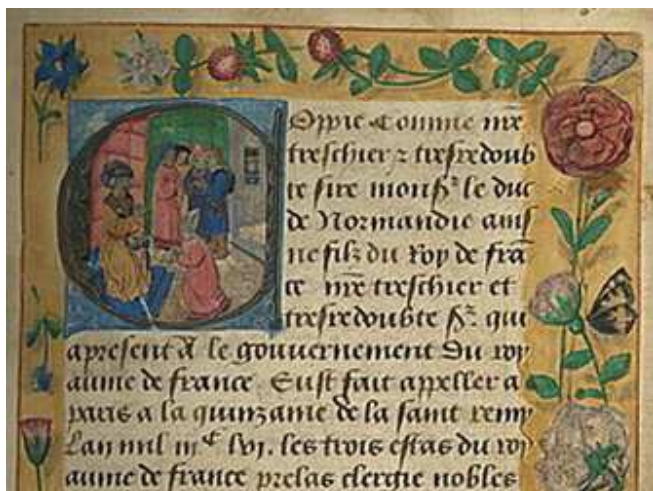 Coppie comme nr̄e
treschier ⁊ tresredoub
te sire monsr̄ le duc
de Normandie ains
ne filz du Roy de frā
ce nr̄e treschier et
tresredoubte sr̄. qui
apresent A le gouuernement du roy
aume de france. Eust fait appeller a
paris a la quinzaine de la saint remy
Lan mil iijc lvj. les trois estas du roy
aume de france prelas clergie nobles